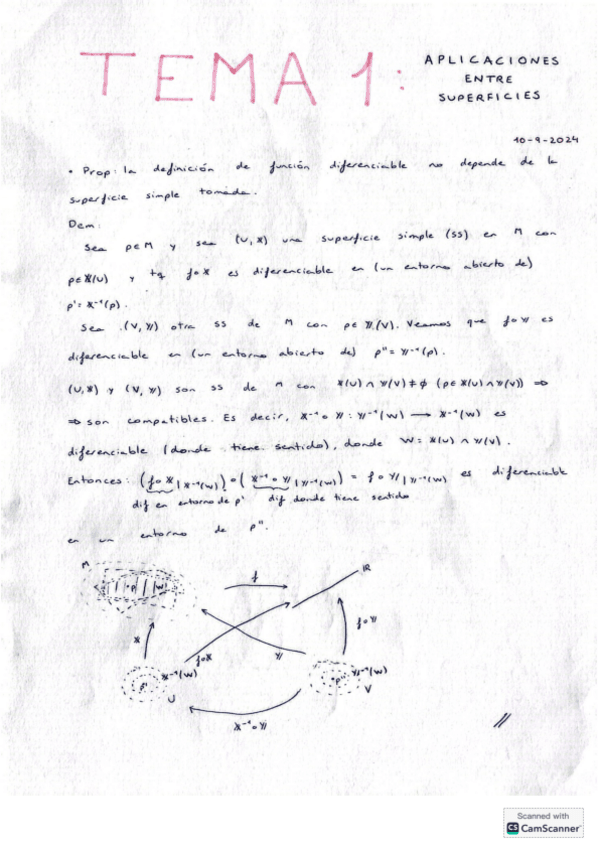 TEMA 1:
APLICACIONES
ENTRE
SUPERFICIES
10-9-2024
• Prop: la definición de función diferenciable no depende de la
superficie simple tomada.
Dem:
Sea p∈M y sea (U,𝕏) una superficie simple (SS) en M con
p∈𝕏(U) y tq f∘𝕏 es diferenciable en (un entorno abierto de)
p'= 𝕏⁻¹(p).
Sea (V,𝕐) otra SS de M con p∈𝕐(V). Veamos que f∘𝕐 es
diferenciable en (un entorno abierto de) p''= 𝕐⁻¹(p).
(U,𝕏) y (V,𝕐) son SS de M con 𝕏(U)∩𝕐(V)≠∅ (p∈𝕏(U)∩𝕐(V)) ⇒
⇒ son compatibles. Es decir, 𝕏⁻¹∘𝕐 : 𝕐⁻¹(W) → 𝕏⁻¹(W) es
diferenciable (donde tiene sentido), donde W = 𝕏(U)∩𝕐(V).
Entonces: (f∘𝕏|𝕏⁻¹(W))∘(𝕏⁻¹∘𝕐|𝕐⁻¹(W)) = f∘𝕐|𝕐⁻¹(W) es diferenciable
dif en entorno de p' dif donde tiene sentido
en un entorno de p''.
M
p W
f
ℝ
𝕏
f∘𝕏
𝕐
f∘𝕐
p' 𝕏⁻¹(W)
U
p'' 𝕐⁻¹(W)
V
𝕏⁻¹∘𝕐
//
Scanned with
CS CamScanner